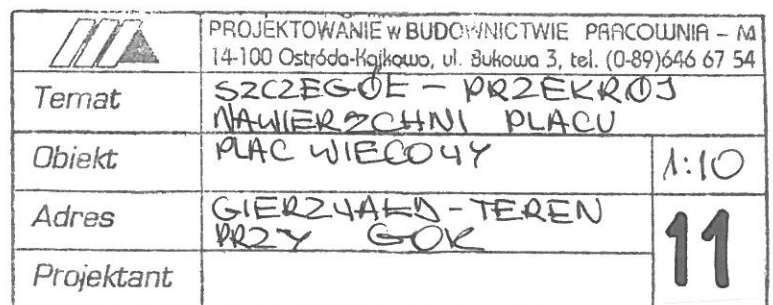 PROJEKTOWANIE w BUDOWNICTWIE PRACOWNIA – M
14-100 Ostróda-Kajkowo, ul. Bukowa 3, tel. (0-89)646 67 54
Temat SZCZEGÓŁ – PRZEKRÓJ
NAWIERZCHNI PLACU
Obiekt PLAC WIECOWY 1:10
Adres GIERZWAŁD – TEREN
PRZY GOK
11
Projektant